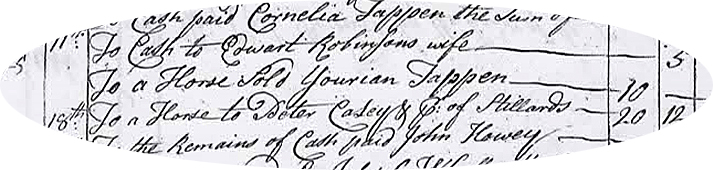 Cash paid Cornelia Tappen the Sum of
11th To Cash to Edwart Robinsons wife 5
5 To a Horse Sold Yourian Tappen 10
18th To a Horse to Peter Casey & of Stillards 20 12
To the Remains of Cash paid John Howey